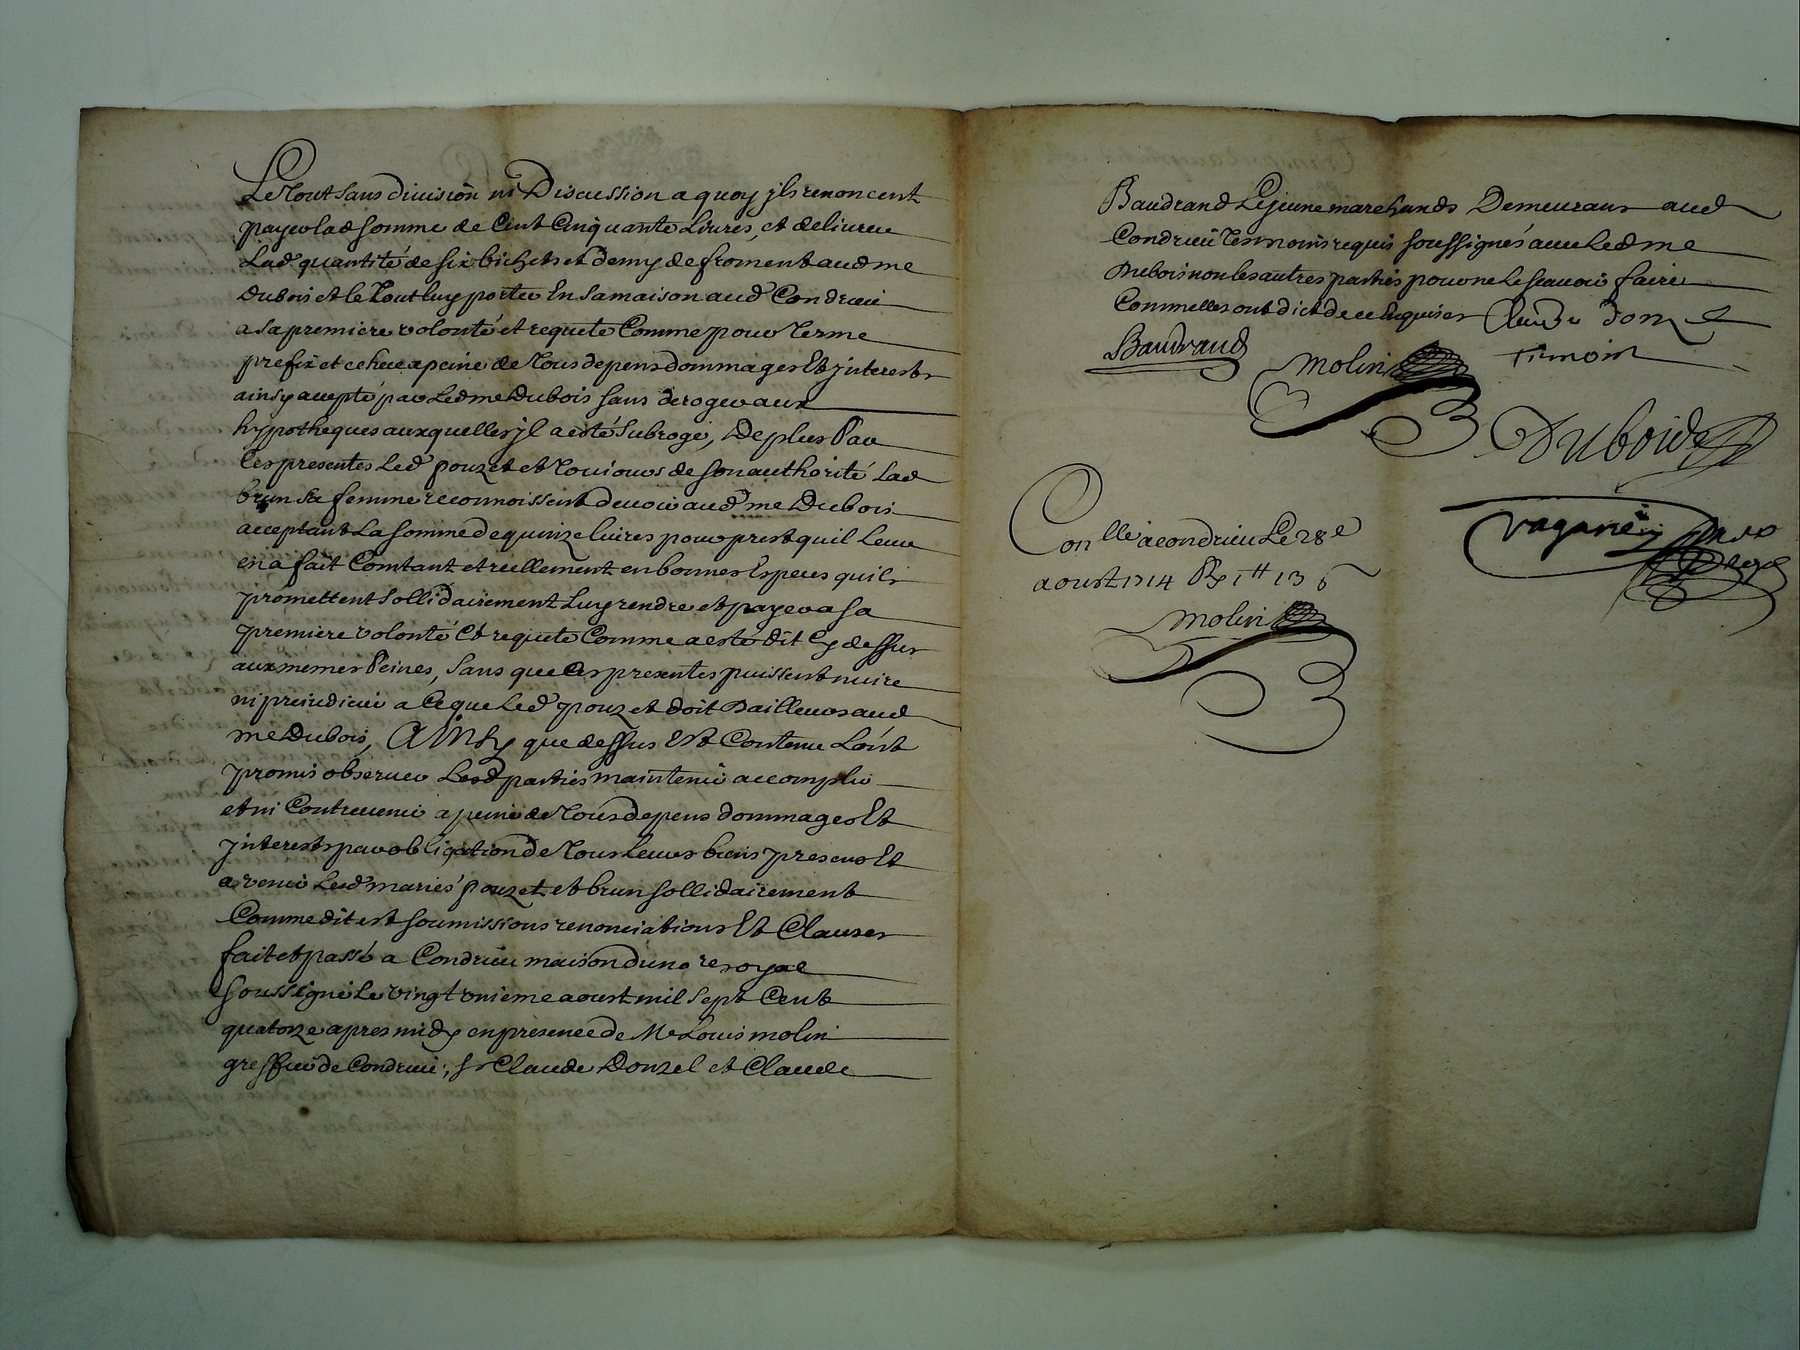 Le tout sans division ni Discussion a quoy jls renoncent
payer lad somme de Cent Cinquante Livres, et delivrer
Lad quantité de six bichets et demy de froment aud me
Dubois et le tout luy porter En sa maison aud Condrieu
a sa premiere volonté et requete Comme pour terme
prefix et echeu a peine de tous depens dommages Et jnterests
ainsy accepté par Led me Dubois sans deroger aux
hypotheques auxquelles jl a esté subrogé, De plus Par
Ces presentes Led pouzet et de son authorité Lad
brun sa femme reconnoissent devoir aud me Dubois
acceptant La somme de quinze livres pour prest quil Leur
en a fait Comtant et reellement en bonnes Especes quils
promettent sollidairement Luy rendre et payer a sa
premiere volonté Et requete Comme a esté dit Cy dessus
aux memes Peines, sans que Ces presentes puissent nuire
ni preiudicier a Ce que Led pouzet doit Dailleurs aud
me Dubois, Ainsy que dessus Est Contenu L'ont
promis observer Lesd parties maintenir accomplir
et ni Contrevenir a peine de tous depens dommages Et
jnterests par obligation de tous Leurs biens presens Et
a venir Lesd mariés pouzet et brun sollidairement
Comme dit est soumissions renonciations Et Clauses
fait et passé a Condrieu maison du no re royal
soussigné Le vingt unieme aoust mil sept Cent
quatorze apres midy en presence de Me Louis molin
greffier de Condrieu, sr Claude Donzel et Claude
Baudrand Lejeune marchands Demeurans aud
Condrieu temoins requis soussignés avec Led me
Dubois non les autres parties pour ne le scavoir faire
Comme elles ont dict de ce Enquises Claude donzel
Baudrand molin temoin
Dubois
Con lle a condrieu Le 28e
aoust 1714 R 1 tt 13 s
vaganey
molin